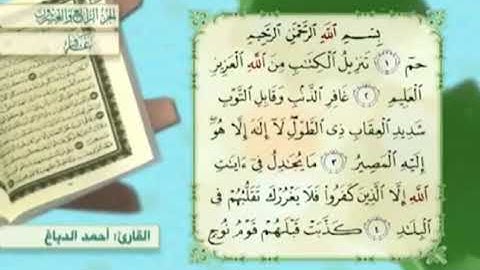 الجزء الرابع والعشرون
غافر
بِسْمِ ٱللَّهِ ٱلرَّحْمَٰنِ ٱلرَّحِيمِ
حمٓ ١ تَنزِيلُ ٱلْكِتَٰبِ مِنَ ٱللَّهِ ٱلْعَزِيزِ
ٱلْعَلِيمِ ٢ غَافِرِ ٱلذَّنۢبِ وَقَابِلِ ٱلتَّوْبِ
شَدِيدِ ٱلْعِقَابِ ذِى ٱلطَّوْلِ لَآ إِلَٰهَ إِلَّا هُوَ
إِلَيْهِ ٱلْمَصِيرُ ٣ مَا يُجَٰدِلُ فِىٓ ءَايَٰتِ
ٱللَّهِ إِلَّا ٱلَّذِينَ كَفَرُوا۟ فَلَا يَغْرُرْكَ تَقَلُّبُهُمْ فِى
ٱلْبِلَٰدِ ٤ كَذَّبَتْ قَبْلَهُمْ قَوْمُ نُوحٍ
القارئ: أحمد الدباغ